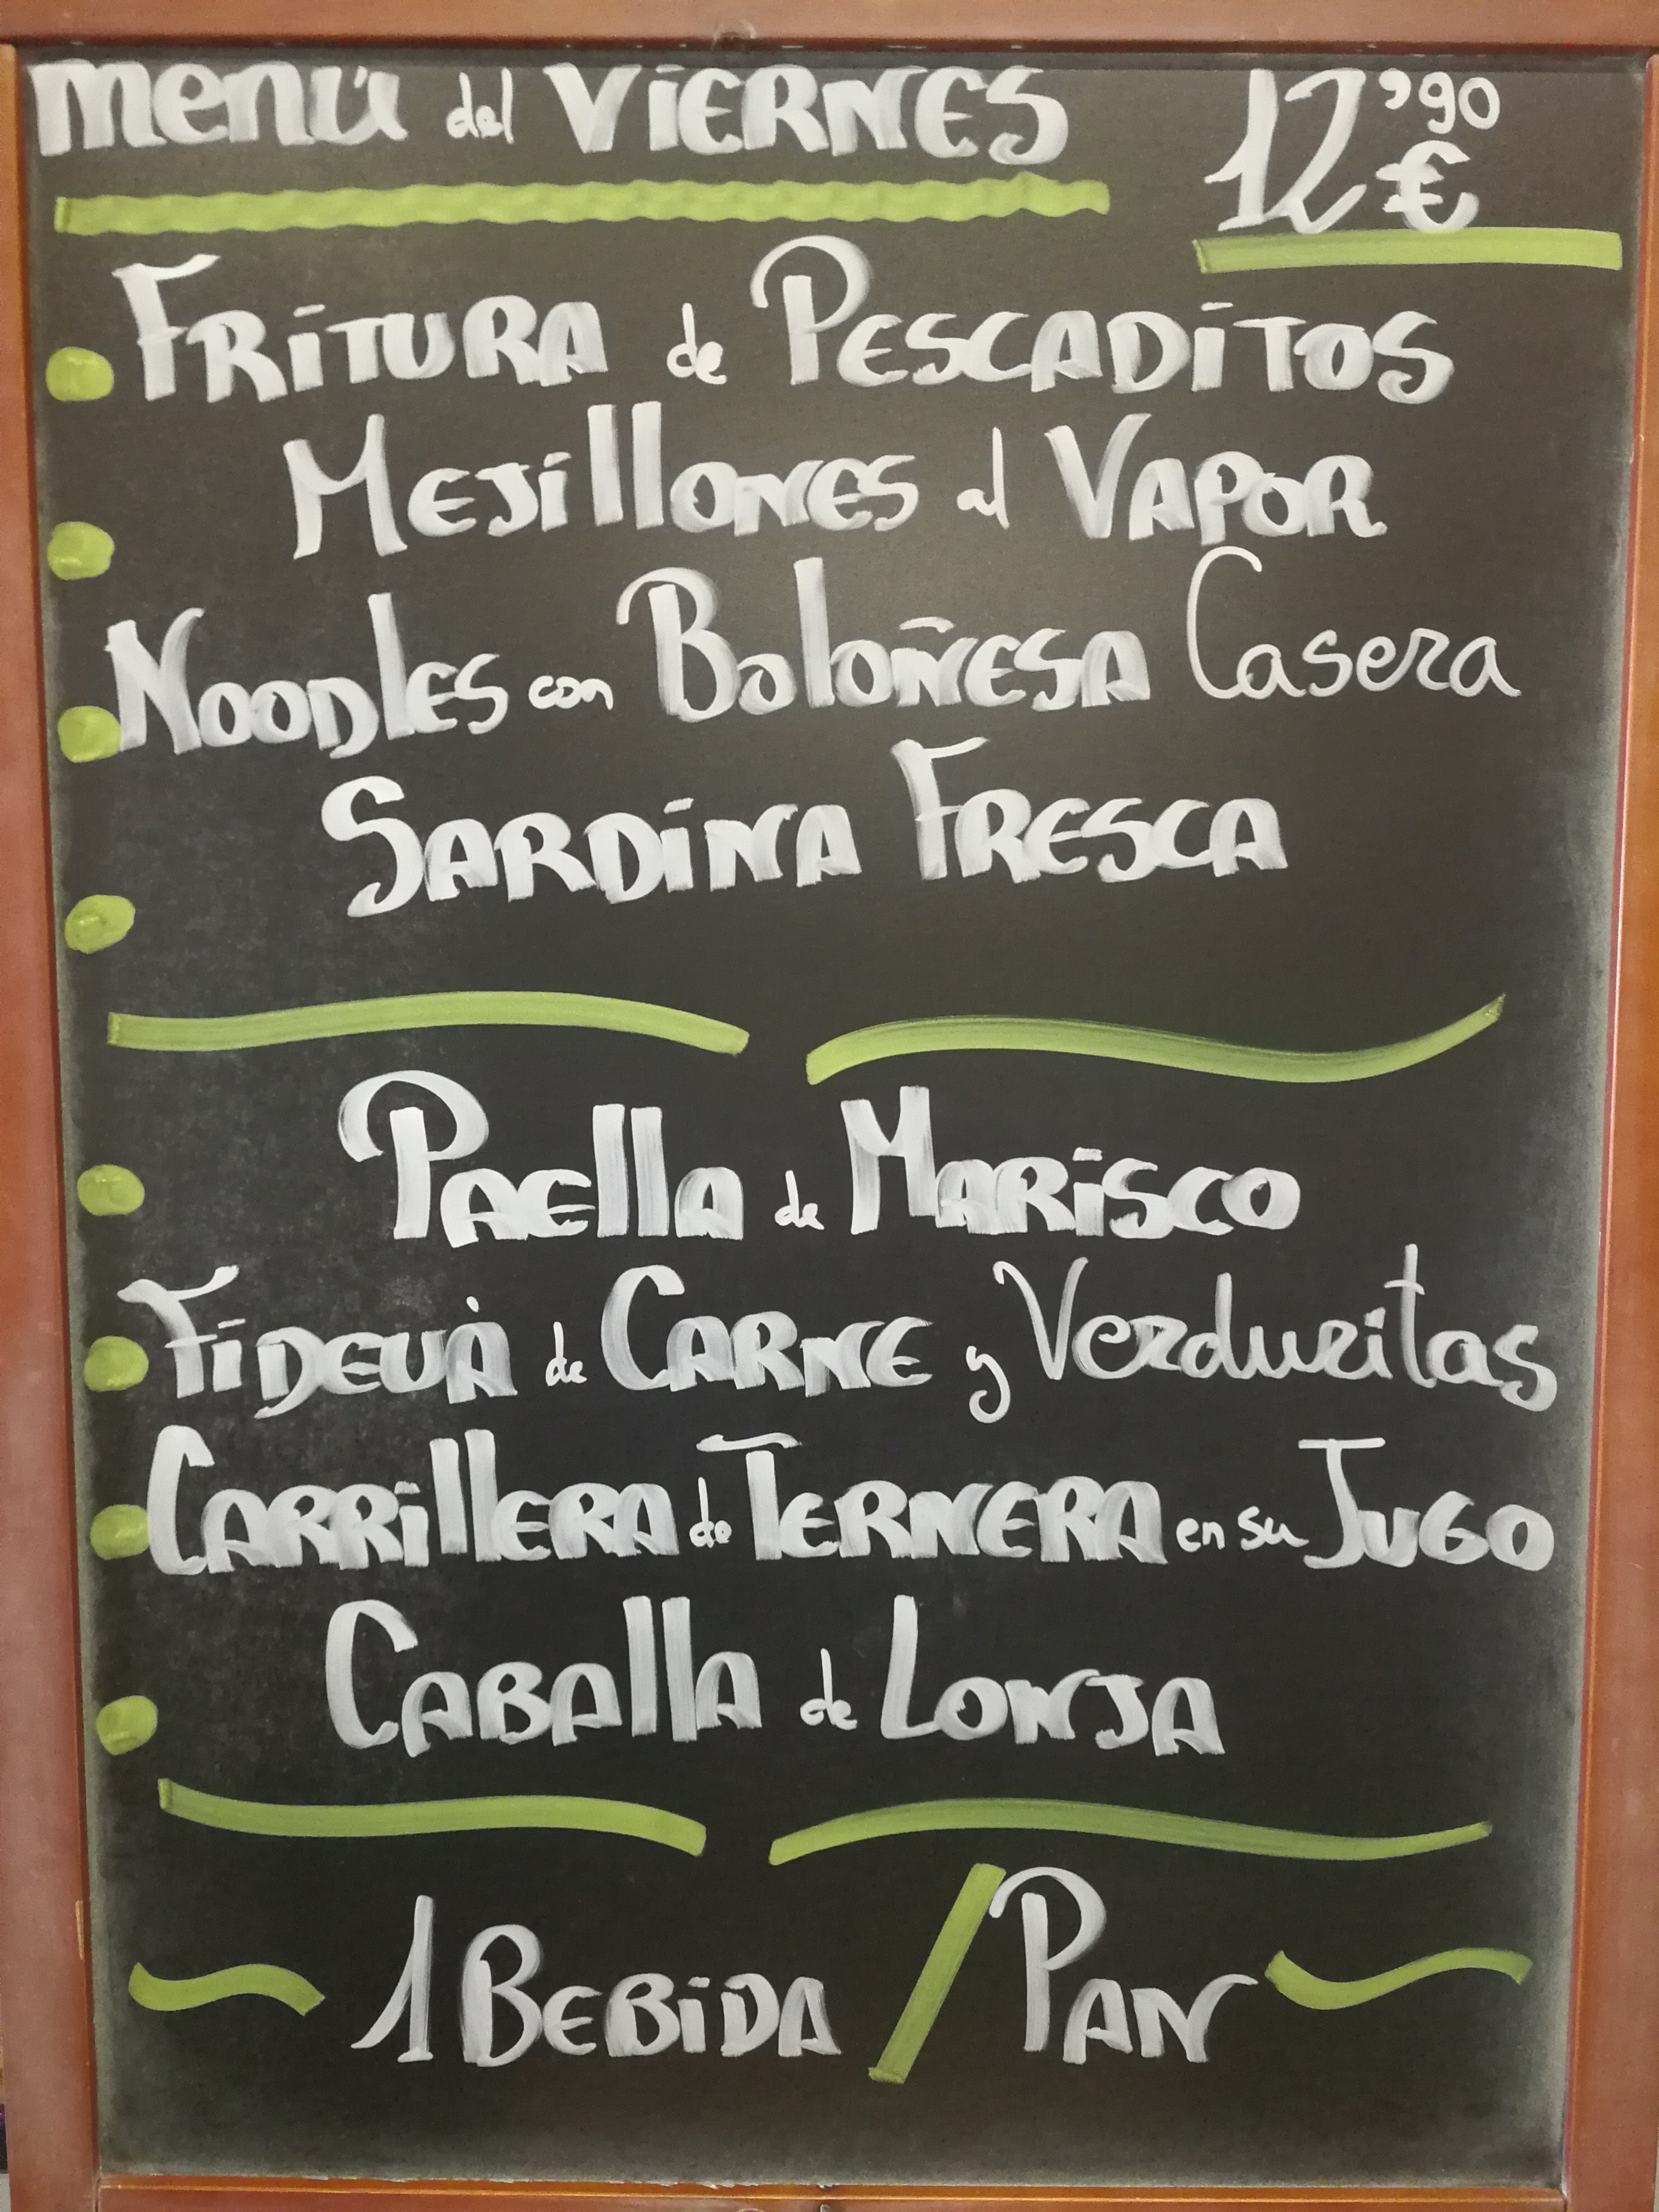 menú del VIERNES 12'90 €
FRITURA de PESCADITOS
MEJillONES al VAPOR
NOODlES con BoloÑESA Casera
SARDINA FRESCA
PAElla de MARISCO
FIDEUÀ de CARNE y Verduritas
CARRIllERA de TERNERA en su JUGO
CABAlla de LONJA
1 BEBIDA / PAN